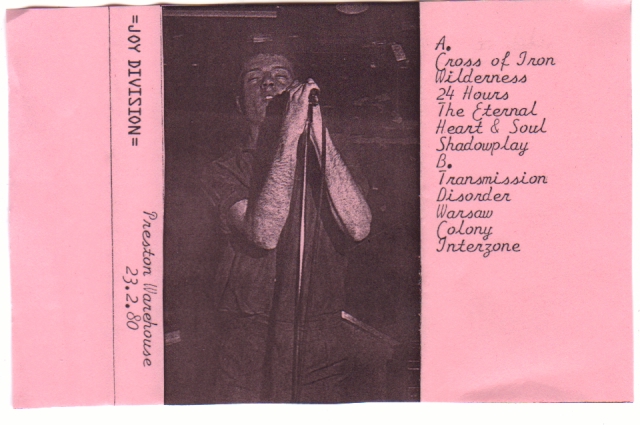 =JOY DIVISION=
Preston Warehouse
23.2.80
A.
Cross of Iron
Wilderness
24 Hours
The Eternal
Heart & Soul
Shadowplay
B.
Transmission
Disorder
Warsaw
Colony
Interzone